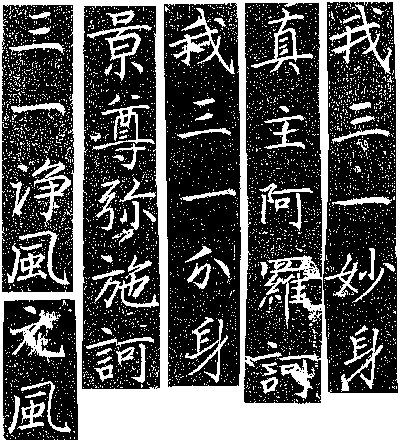 我三一妙身
真主阿羅訶
我三一分身
景尊弥施訶
三一浄風
元風